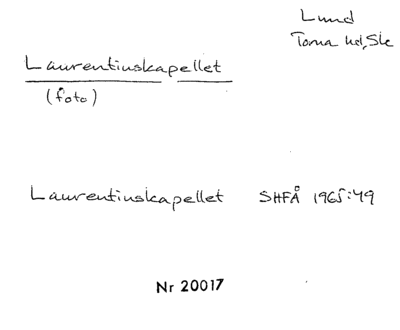 Lund
Torna hd, Sk
Laurentiuskapellet
(foto)
Laurentiuskapellet SHFÅ 1965:49
Nr 20017